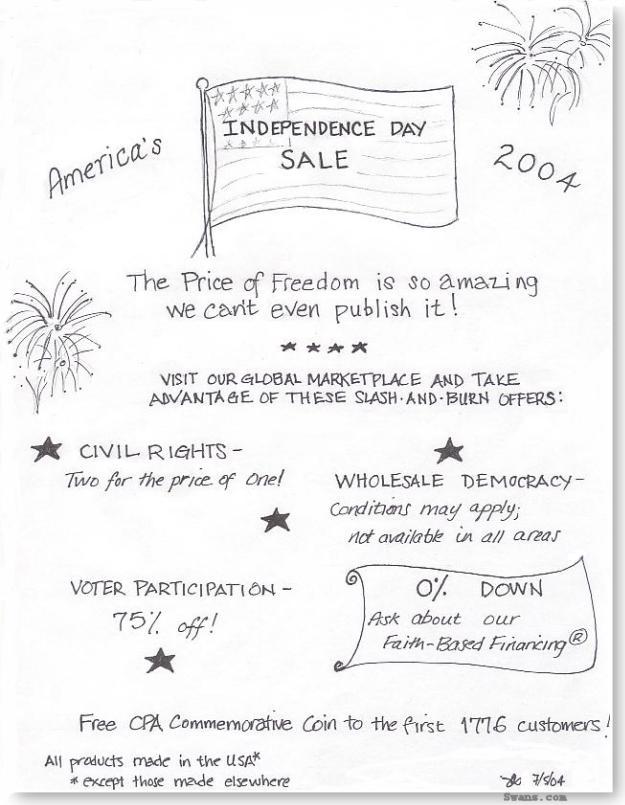 America's
INDEPENDENCE DAY
SALE
2004
The Price of Freedom is so amazing
we can't even publish it!
VISIT OUR GLOBAL MARKETPLACE AND TAKE
ADVANTAGE OF THESE SLASH-AND-BURN OFFERS:
CIVIL RIGHTS-
Two for the price of One!
WHOLESALE DEMOCRACY-
Conditions may apply;
not available in all areas
VOTER PARTICIPATION-
75% off!
0% DOWN
Ask about our
Faith-Based Financing®
Free CPA Commemorative Coin to the first 1776 customers!
All products made in the USA*
* except those made elsewhere
7/5/04
Swans.com